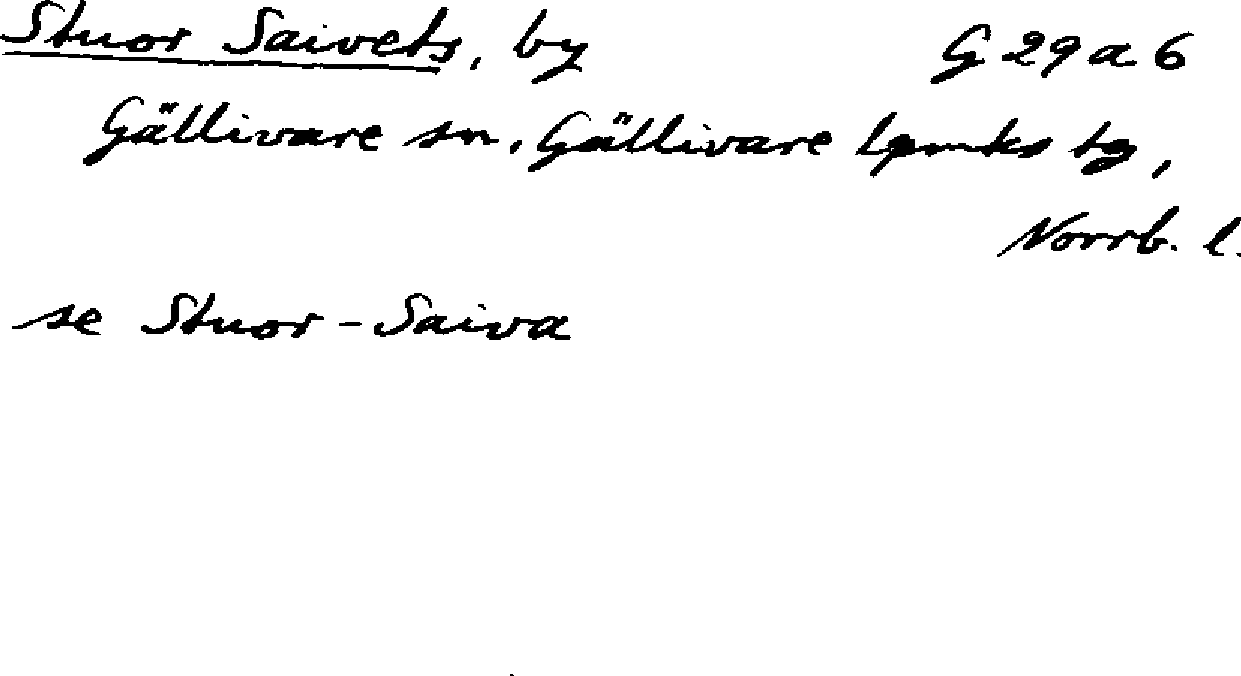 Stuor Saivets, by G 29 a 6
Gällivare sn, Gällivare lpmks tg,
Norrb. l.
se Stuor-Saiva